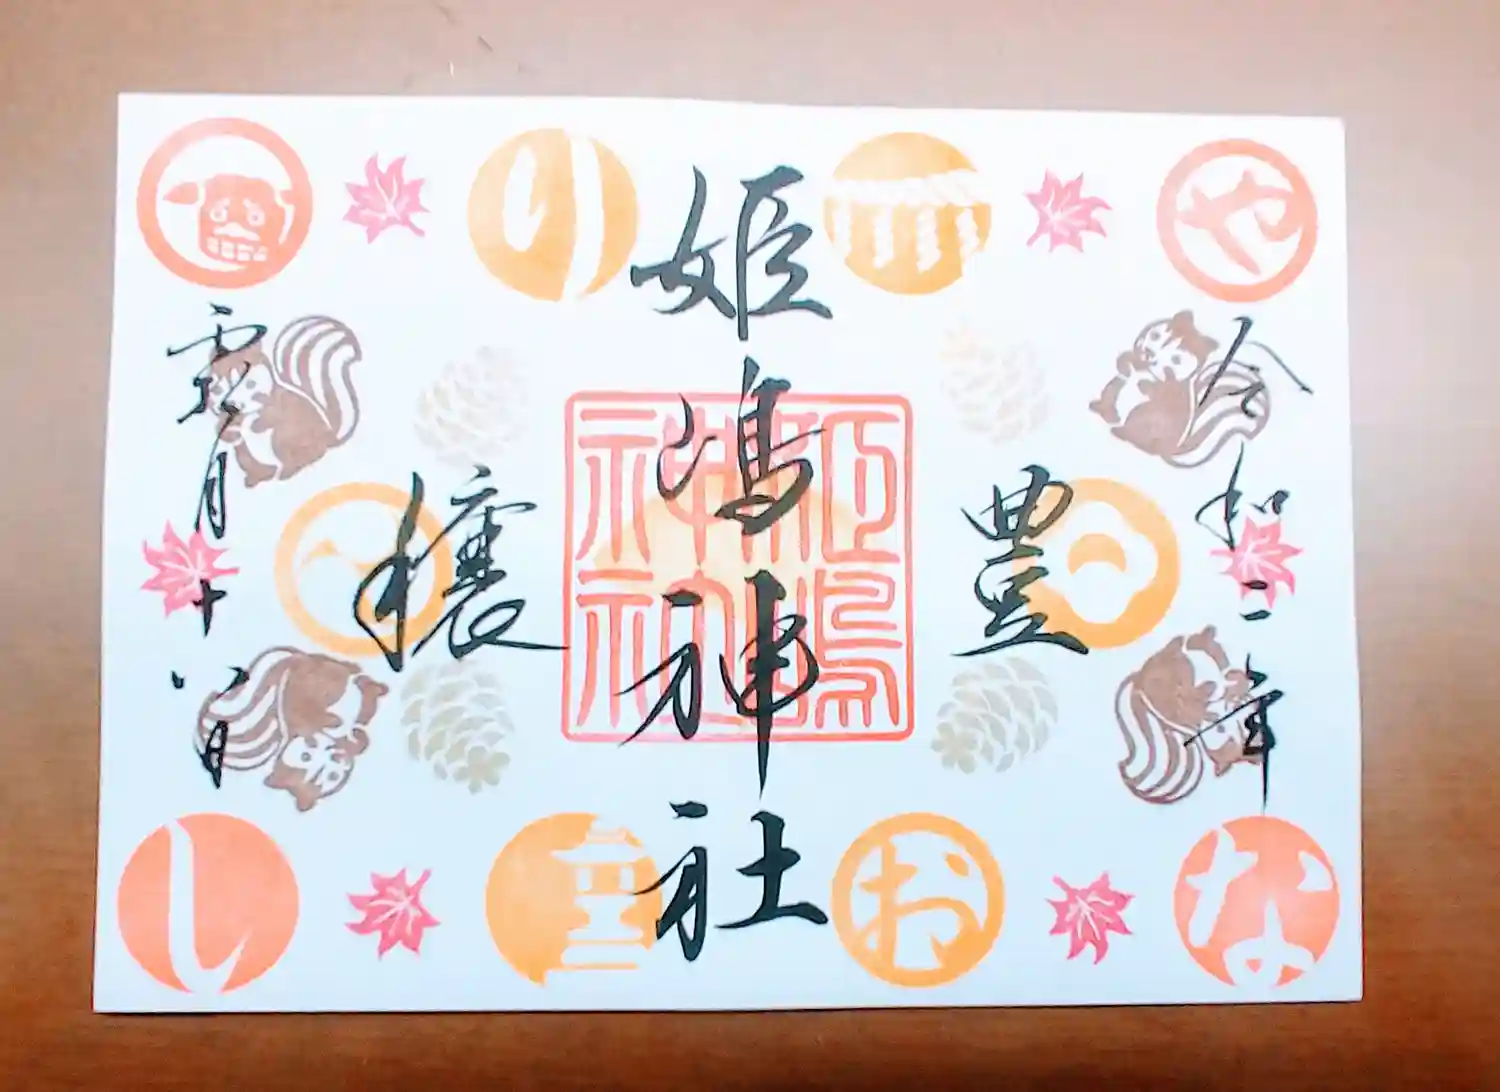 令和二年
豊
姫嶋神社
穣
霜月十八日
姫嶋
神社
や
り
な
お
し